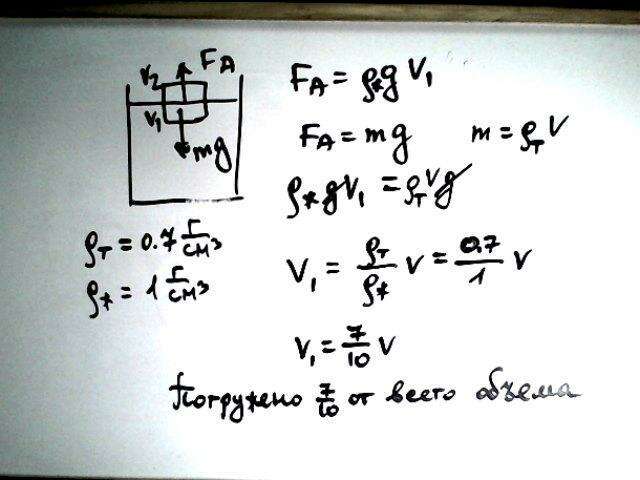 V₂ F_A
V₁
mg
F_A = ρ_ж g V₁
F_A = mg    m = ρ_т V
ρ_ж g V₁ = ρ_т V g
ρ_т = 0.7 г/см³
ρ_ж = 1 г/см³
V₁ = ρ_т/ρ_ж V = 0.7/1 V
V₁ = 7/10 V
Погружено 7/10 от всего объема